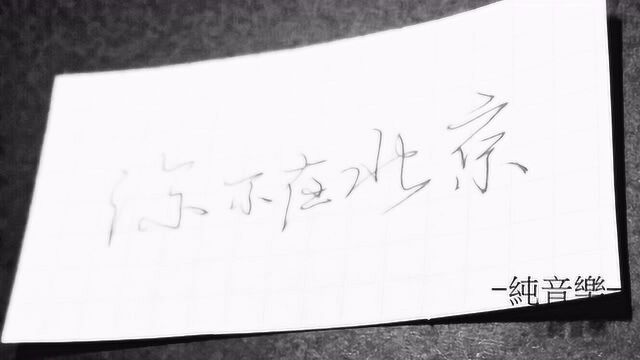 你不在北京
-純音樂-